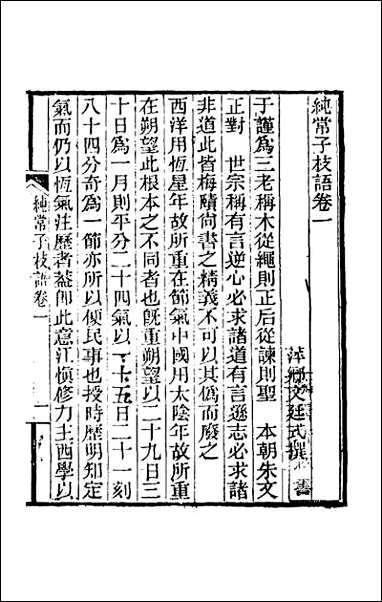 純常子枝語卷一
萍鄉文廷式撰
于謹爲三老稱木從繩則正后從諫則聖　本朝朱文
正對　世宗稱有言逆心必求諸道有言遜志必求諸
非道此皆梅賾尙書之精義不可以其僞而廢之
西洋用恆星年故所重在節氣中國用太陰年故所重
在朔望此根本之不同者也旣重朔望以二十九日三
十日爲一月則平分二十四氣以十五日二十一刻
八十四分奇爲一節亦所以便民事也授時歷明知定
氣而仍以恆氣注歷者蓋卽此意江愼修力主西學以
純常子枝語卷一
一